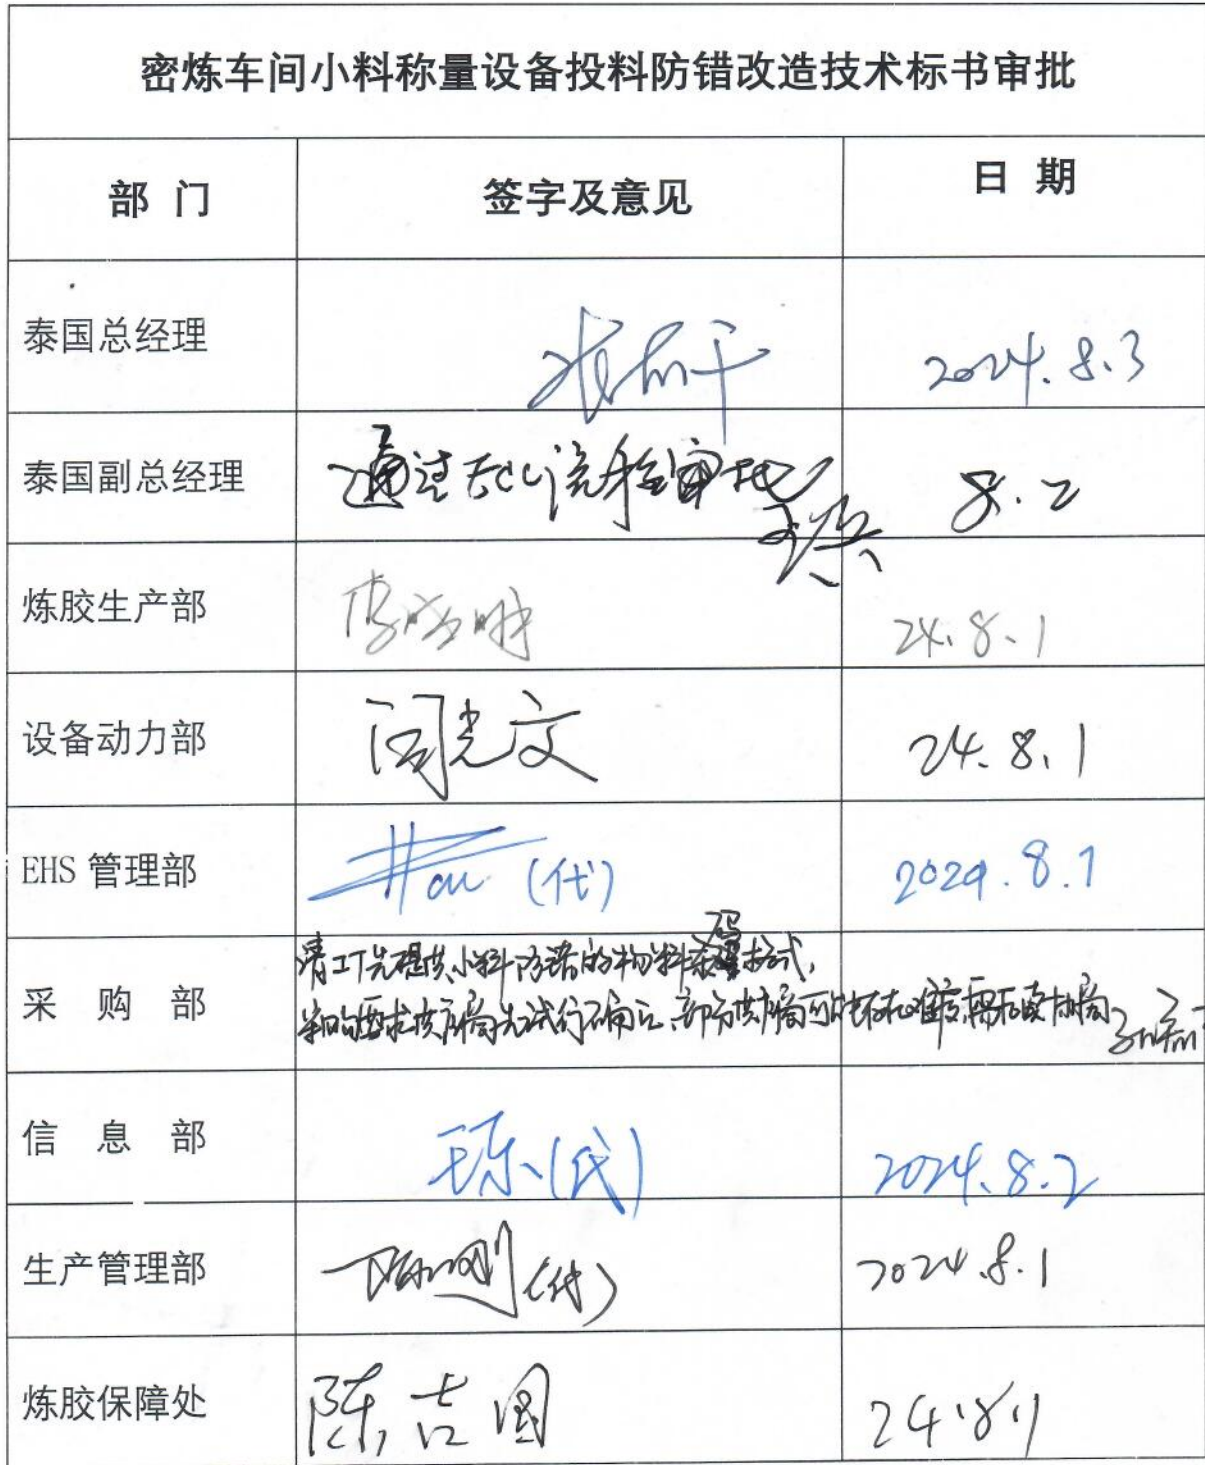 密炼车间小料称量设备投料防错改造技术标书审批
部 门 签字及意见 日 期
泰国总经理 2024.8.3
泰国副总经理 通过 流程审批 8.2
炼胶生产部 李 明 24.8.1
设备动力部 闫光文 24.8.1
EHS 管理部 (代) 2024.8.1
采 购 部 请工厂先提供小料防错的物料条码格式,
要求供应商先试行确认、部分供应商可能存在难度需
信 息 部 王乐(代) 2024.8.2
生产管理部 (代) 2024.8.1
炼胶保障处 陈吉国 24.8.1